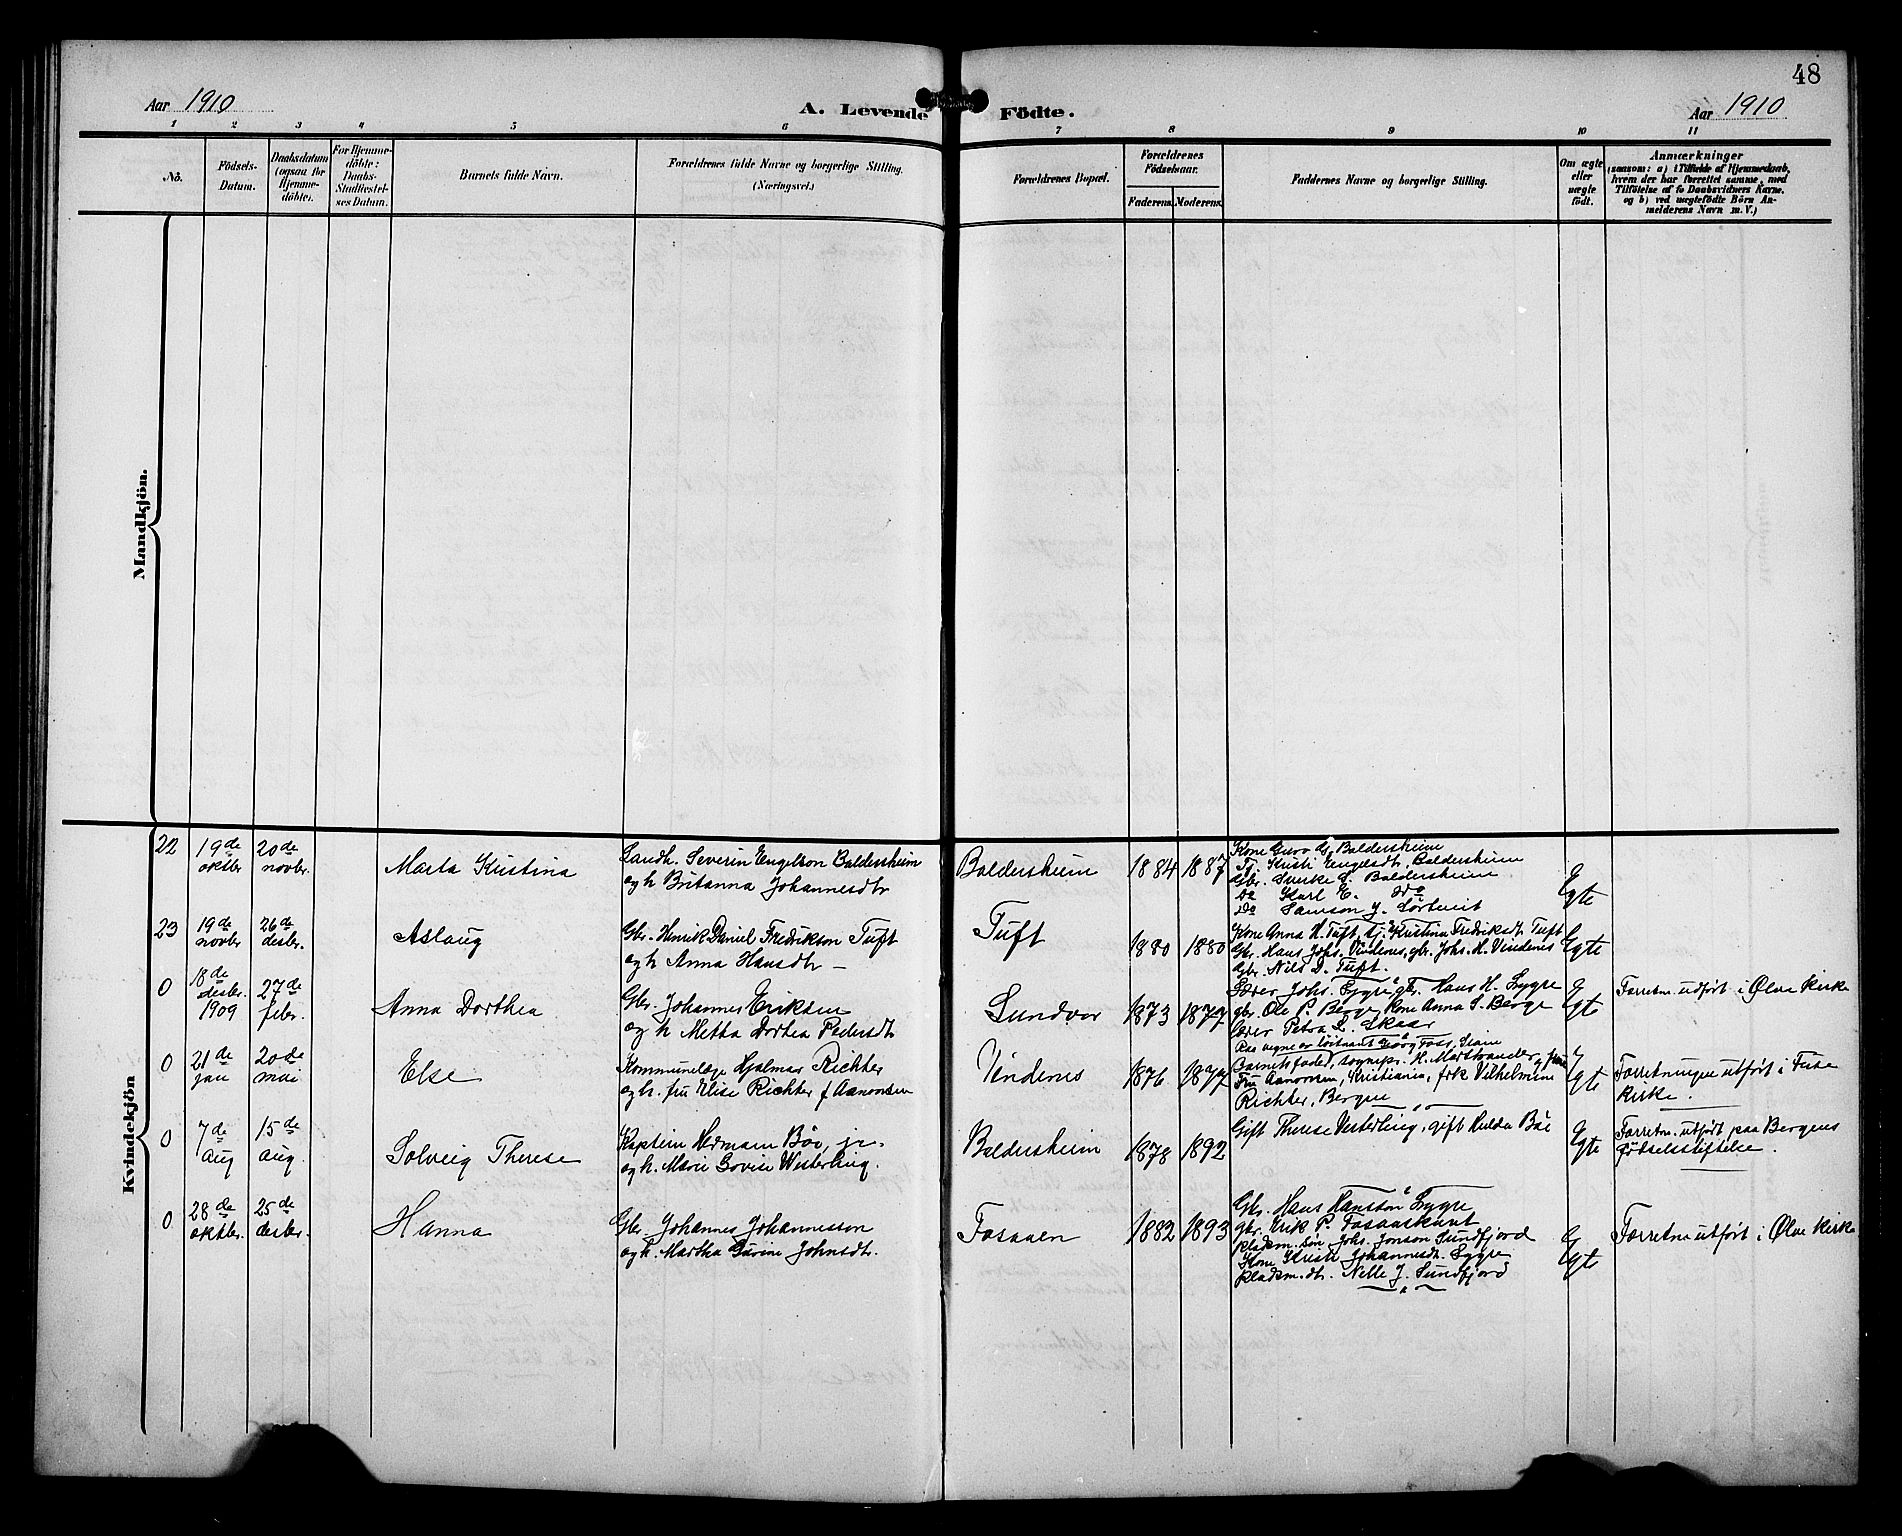 48
Aar 1910
A. Levende Födte.
Aar 1910
1 2 3 4 5 6 7 8 9 10 11
No.
Födsels-
Datum.
Daabsdatum
(ogsaa for
Hjemme-
döbte).
For Hjemme-
döbte:
Daabs-
Stadfæstel-
ses Datum.
Barnets fulde Navn.
Forældrenes fulde Navne og borgerlige Stilling.
(Næringsvei.)
Forældrenes Bopæl.
Forældrenes
Födselsaar.
Faderens. Moderens.
Faddernes Navne og borgerlige Stilling.
Om ægte
eller
uægte
födt.
Anmærkninger
(saasom: a) i Tilfælde af Hjemmedaab,
hvem der har forrettet samme, med
Tilföielse af to Daabsvidners Navne.
og b) ved uægtefödte Börn An-
melderens Navn m. V.)
Mandkjön.
Kvindekjön
22
19de
oktbr
20de
novbr.
Marta Kristina
Landh. Severin Engelson Baldersheim
og h Britanna Johannesdtr
Baldersheim
1884 1887
Kone Guro G. Baldersheim
Tj. Kristi Engelsdtr. Baldersheim
Gbr. Sverke S. Baldersheim
Do Karl E. do
Do Samson J. Sörtveit
Egte
23
19de
novbr
26de
desbr.
Aslaug
Gbr. Henrik Daniel Fredrikson Tuft
og h Anna Hansdtr –
Tuft
1880 1880
Kone Anna H. Tuft, tj. Kristina Fredriksdtr Tuft
Gbr. Hans Johs. Vindenes, gbr. Johs. H. Vindenes
Gbr. Nils D. Tuft.
Egte
0
18de
desbr.
1909
27de
febr.
Anna Dorthea
Gbr. Johannes Eriksen
og h Metta Dortea Pedersdtr
Sundvor
1873 1877
Lærer Johs. Lygre, Hans H. Lygre
gbr. Ole P. Berge, Kone Anna S. Berge
Lærer Petra L. Skaar
Egte
Forretn. utført i Ølve Kirke
0
21de
jan
20de
mai
Else
Kommunelæge Hjalmar Richter
og h. fru Elise Richter f Aanonsen
Vindenes
1876 1877
Paa vegne av löitnant Georg Foss,
Barnets fader, sognepr. H. Marstrander og frue
Fru Aanonsen, Kristiania, frk Vilhelmine
Richter, Bergen
Egte
Forretningen utført i Fuse
Kirke.
0
7de
aug
15de
aug.
Solveig Therese
Kaptein Herman Böe, jr.
og h. Marie Lovise Westerling.
Baldersheim
1878 1892
Gift Therese Vesterling, gift Hulda Böe
Egte
Forretn. utført paa Bergens
Fødselsstiftelse.
0
28de
oktbr.
25de
desbr.
Hanna
Gbr. Johannes Johannesson
og h. Martha Gurine Johnsdtr.
Fosaaen
1882 1893
Gbr. Hans Hansson Lygre
gbr. Erik P. Fosaaskaret
pladsm.søn Johs. Jonson Sundfjord
Kone Kristi Johannesdtr. Lygre
pladsm.dtr. Nelle J. Sundfjord
Egte
Forretn utført i Ølve Kirke